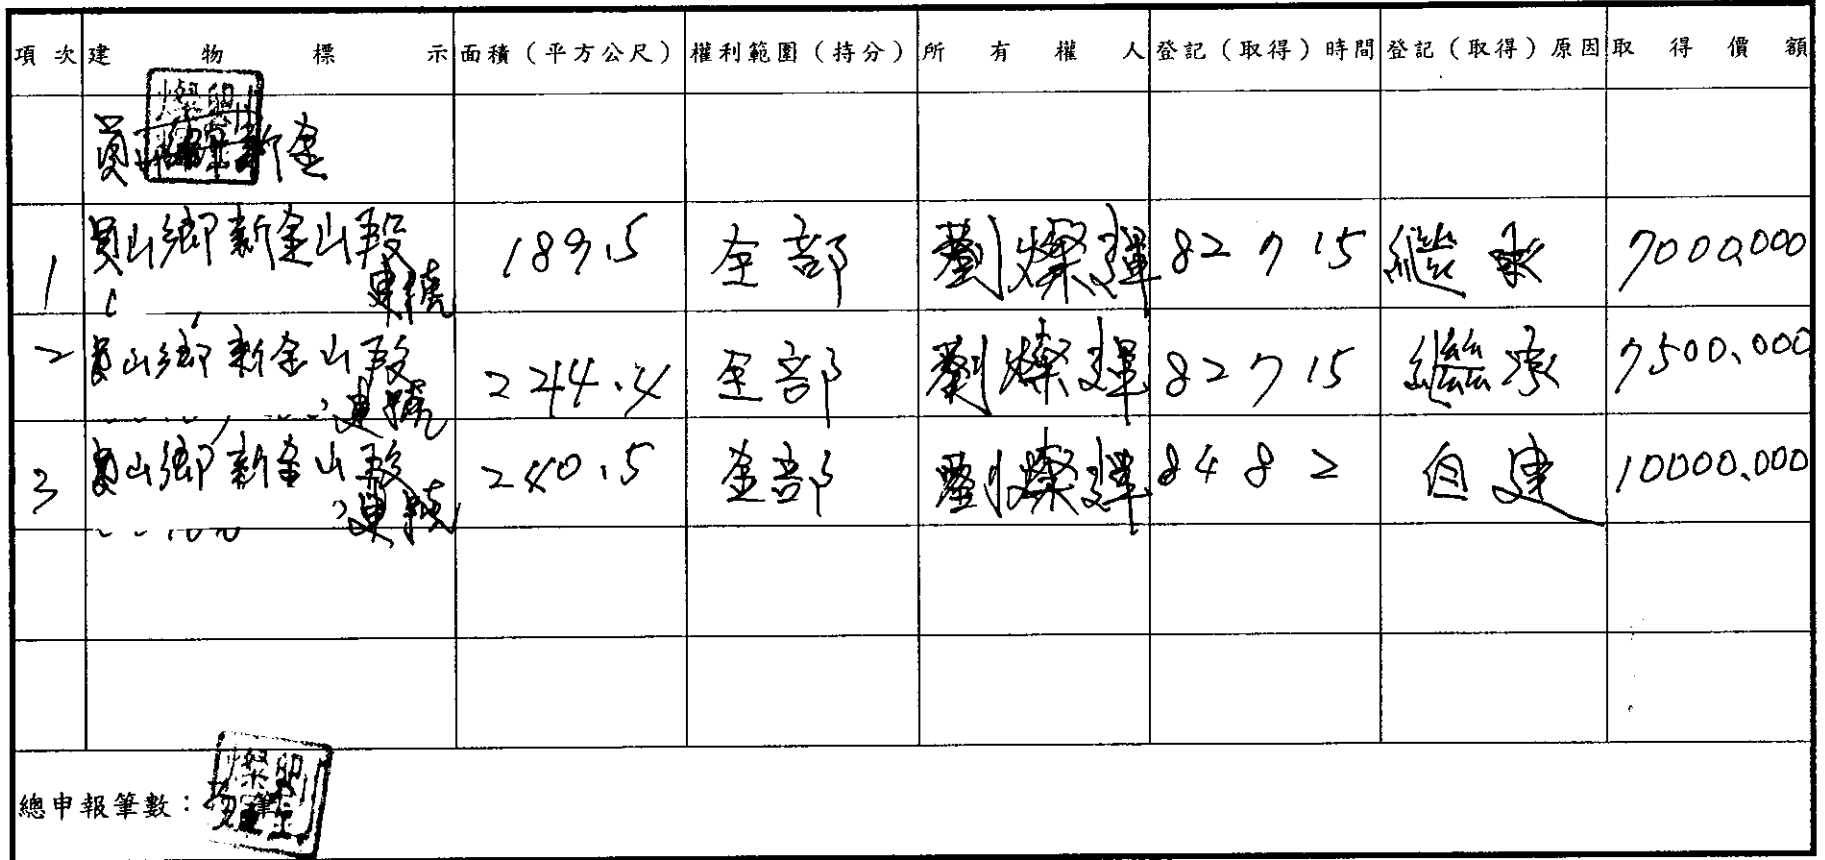 項次 建物標示 面積（平方公尺） 權利範圍（持分） 所有權人 登記（取得）時間 登記（取得）原因 取得價額
員山 新金
1 員山鄉新金山段 建號 189.5 全部 劉燦輝 82 7 15 繼承 7000,000
2 員山鄉新金山段 建號 224.4 全部 劉燦輝 82 7 15 繼承 7500,000
3 員山鄉新金山段 建號 240.5 全部 劉燦輝 84 8 2 自建 10000,000
總申報筆數： 筆